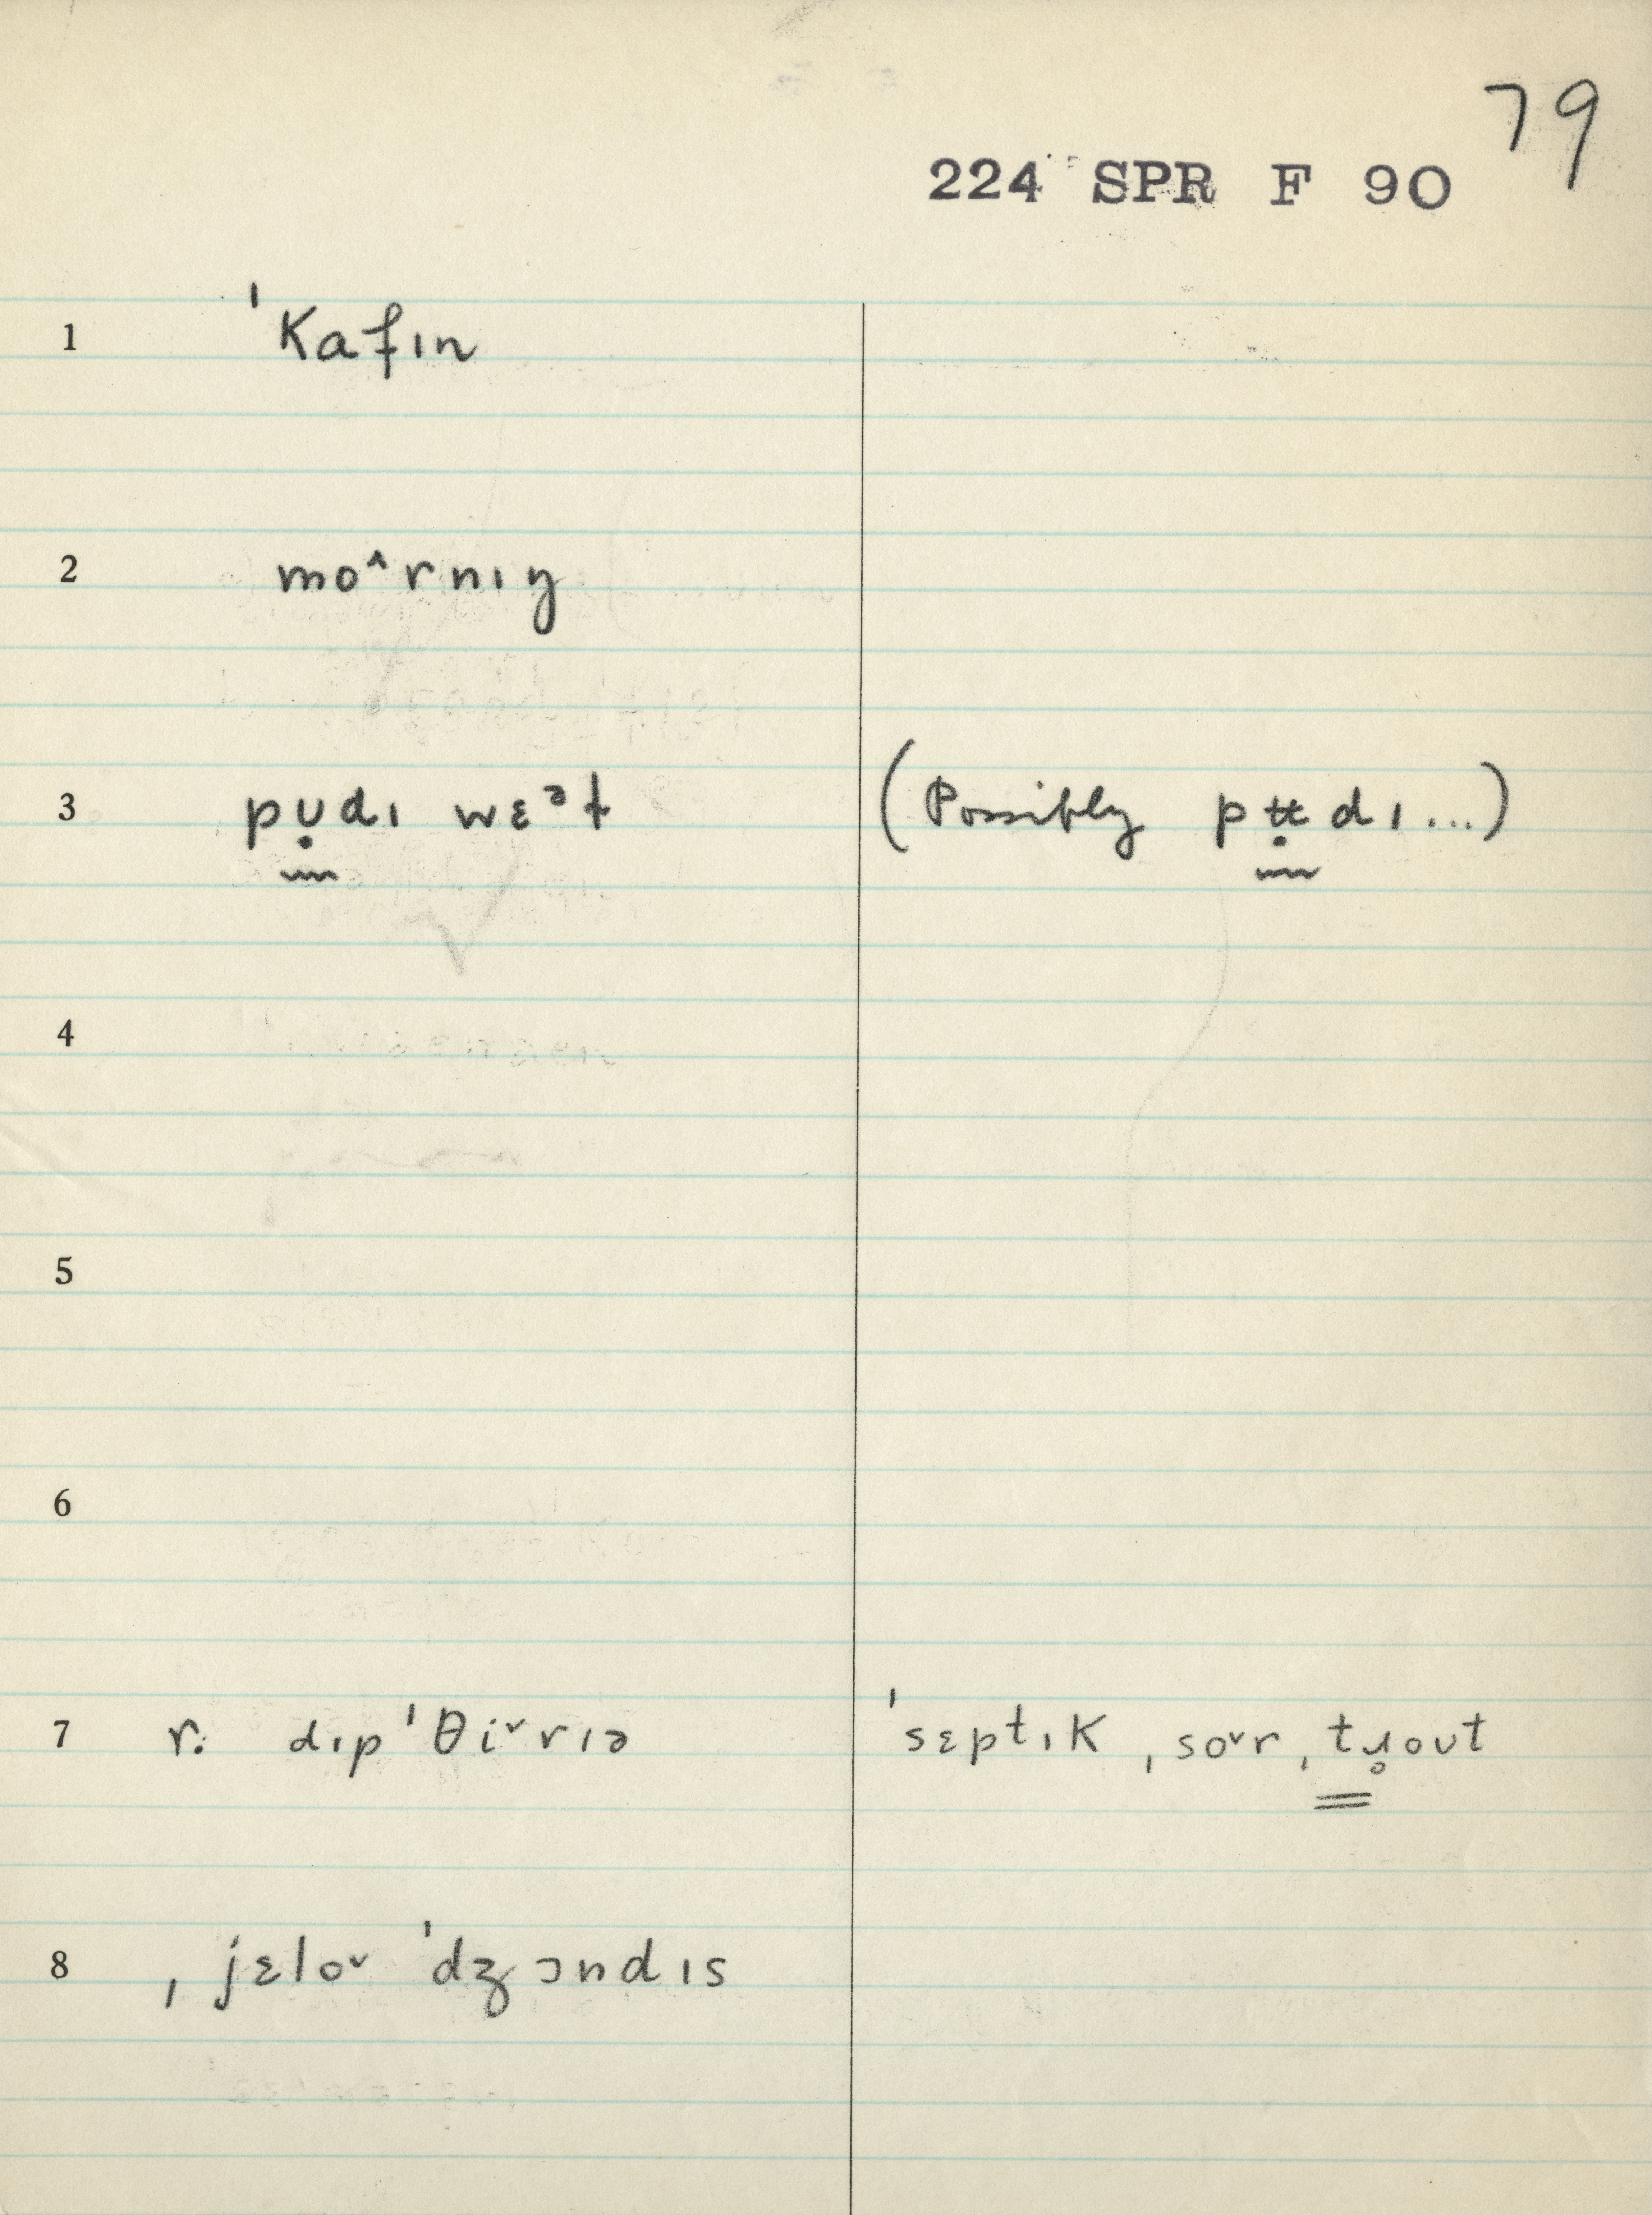 79
224 SPR F 90
1 ˈkafɪn
2 mo˄rnɪŋ
3 pʊ̣dɪ wɛᵊt (Possibly pʉ̣dɪ...)
4
5
6
7 r. dɪpˈθi˅rɪə ˈsɛptɪk, so˅r, tɹ̥oʊt
8 ˌjɛlo˅ ˈdʒɔndɪs